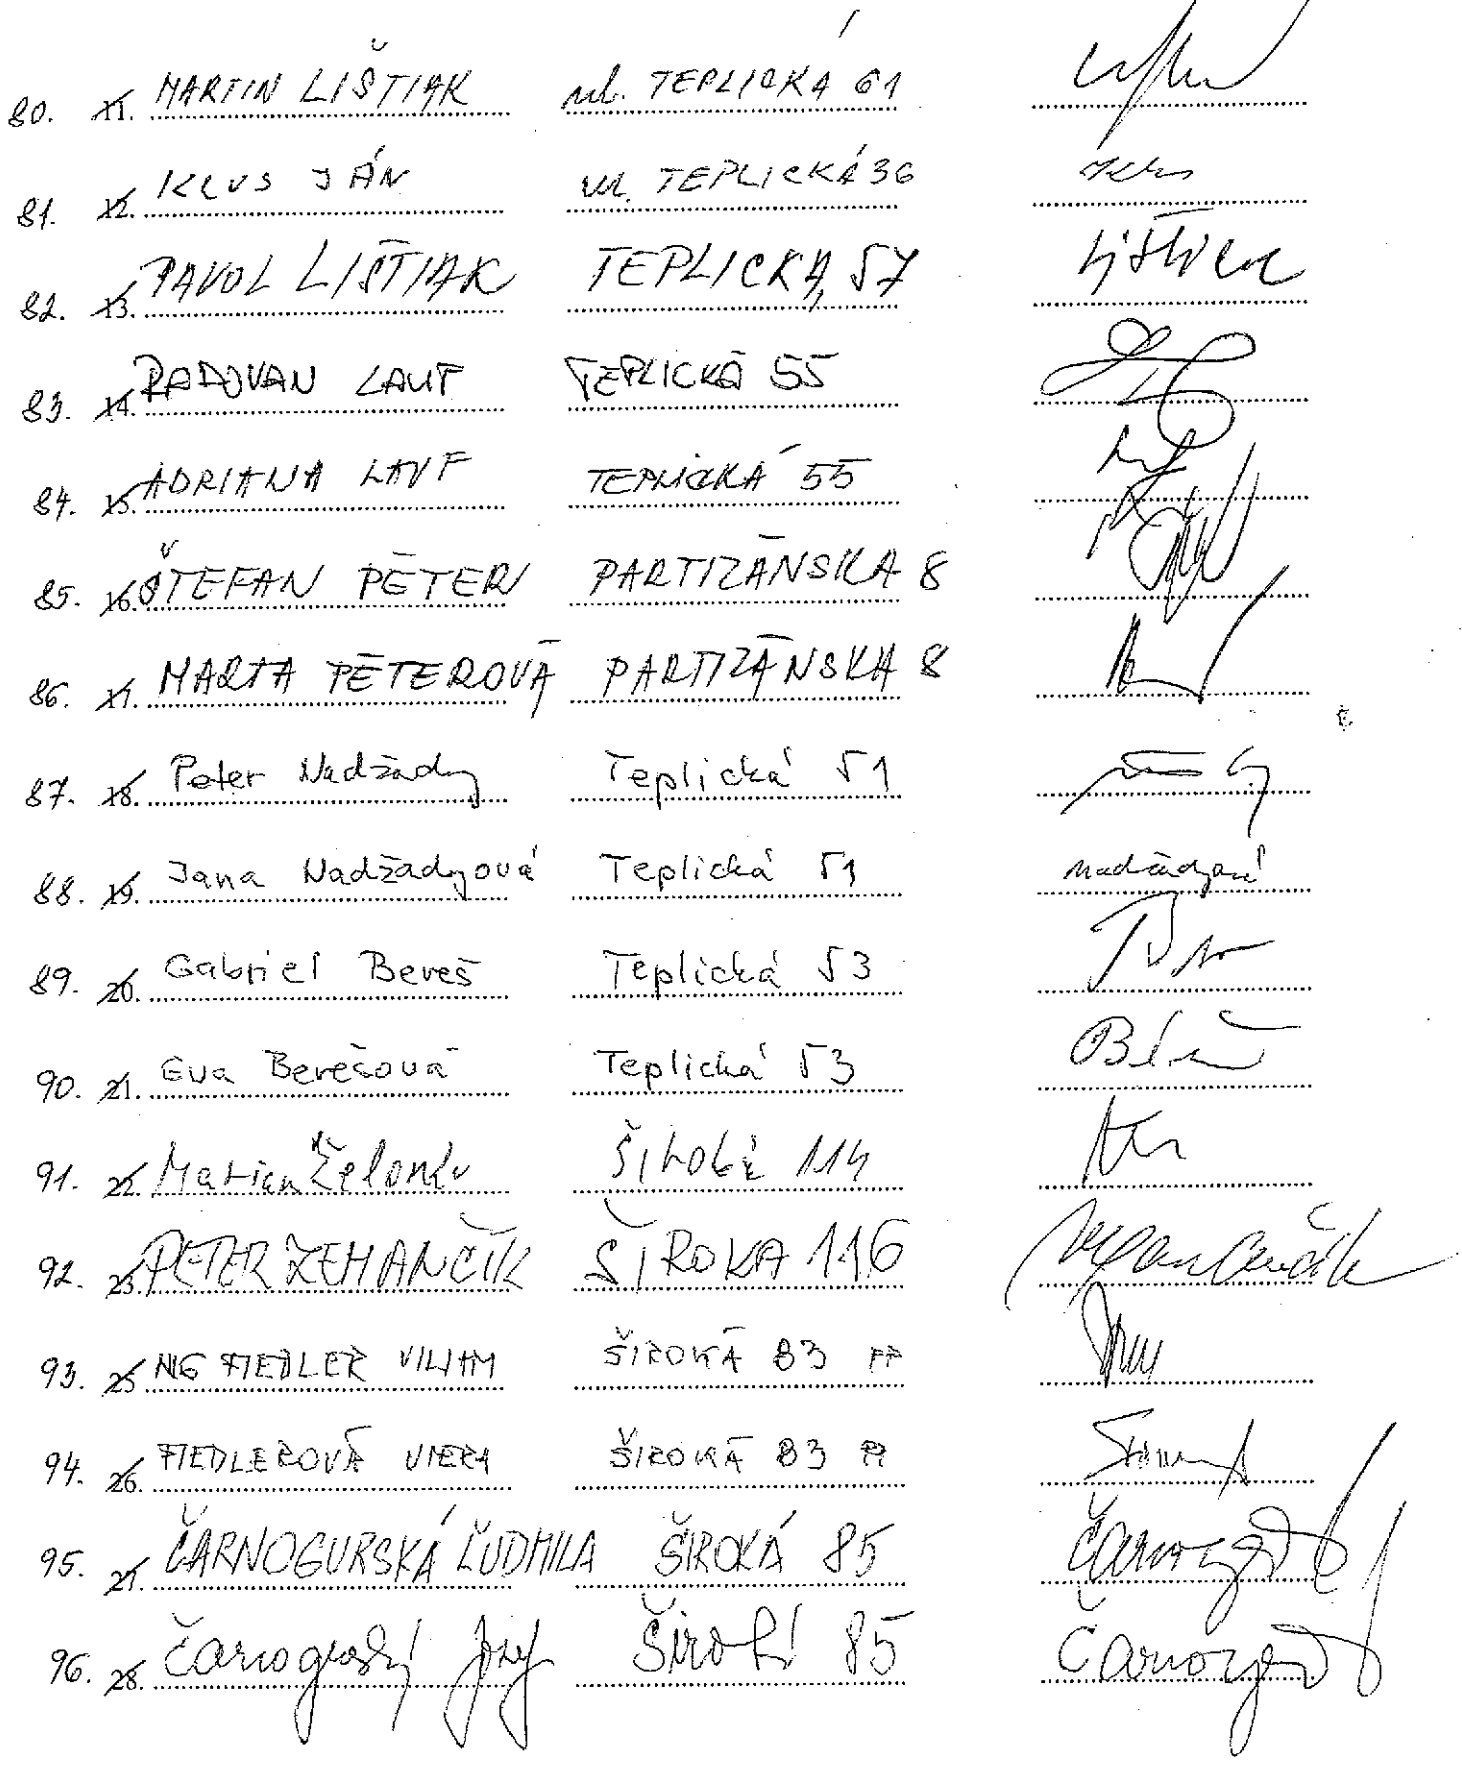 80. 11. MARTIN LIŠTIAK ul. TEPLICKÁ 61
81. 12. KLUS JÁN ul. TEPLICKÁ 36 Klus
82. 13. PAVOL LIŠTIAK TEPLICKÁ, 57 Lištiak
83. 14. RADOVAN LAUF TEPLICKÁ 55
84. 15. ADRIANA LAUF TEPLICKÁ 55
85. 16. ŠTEFAN PÉTER PARTIZÁNSKA 8
86. 17. MARTA PÉTEROVÁ PARTIZÁNSKA 8
87. 18. Peter Nadžady Teplická 51
88. 19. Jana Nadžadyová Teplická 51 Nadžadyová
89. 20. Gabriel Bereš Teplická 53
90. 21. Eva Berešová Teplická 53
91. 22. Marian Želonka 114
92. 23. PETER ZEMANČÍK ŠIROKA 116 Zemančík
93. 25 ING FIEDLER VILIAM ŠIROKÁ 83 PP
94. 26. FIEDLEROVÁ VIERA ŠIROKÁ 83 PP
95. 27. ČARNOGURSKÁ ĽUDMILA ŠIROKÁ 85
96. 28. Čarnogurský Jozef Široká 85